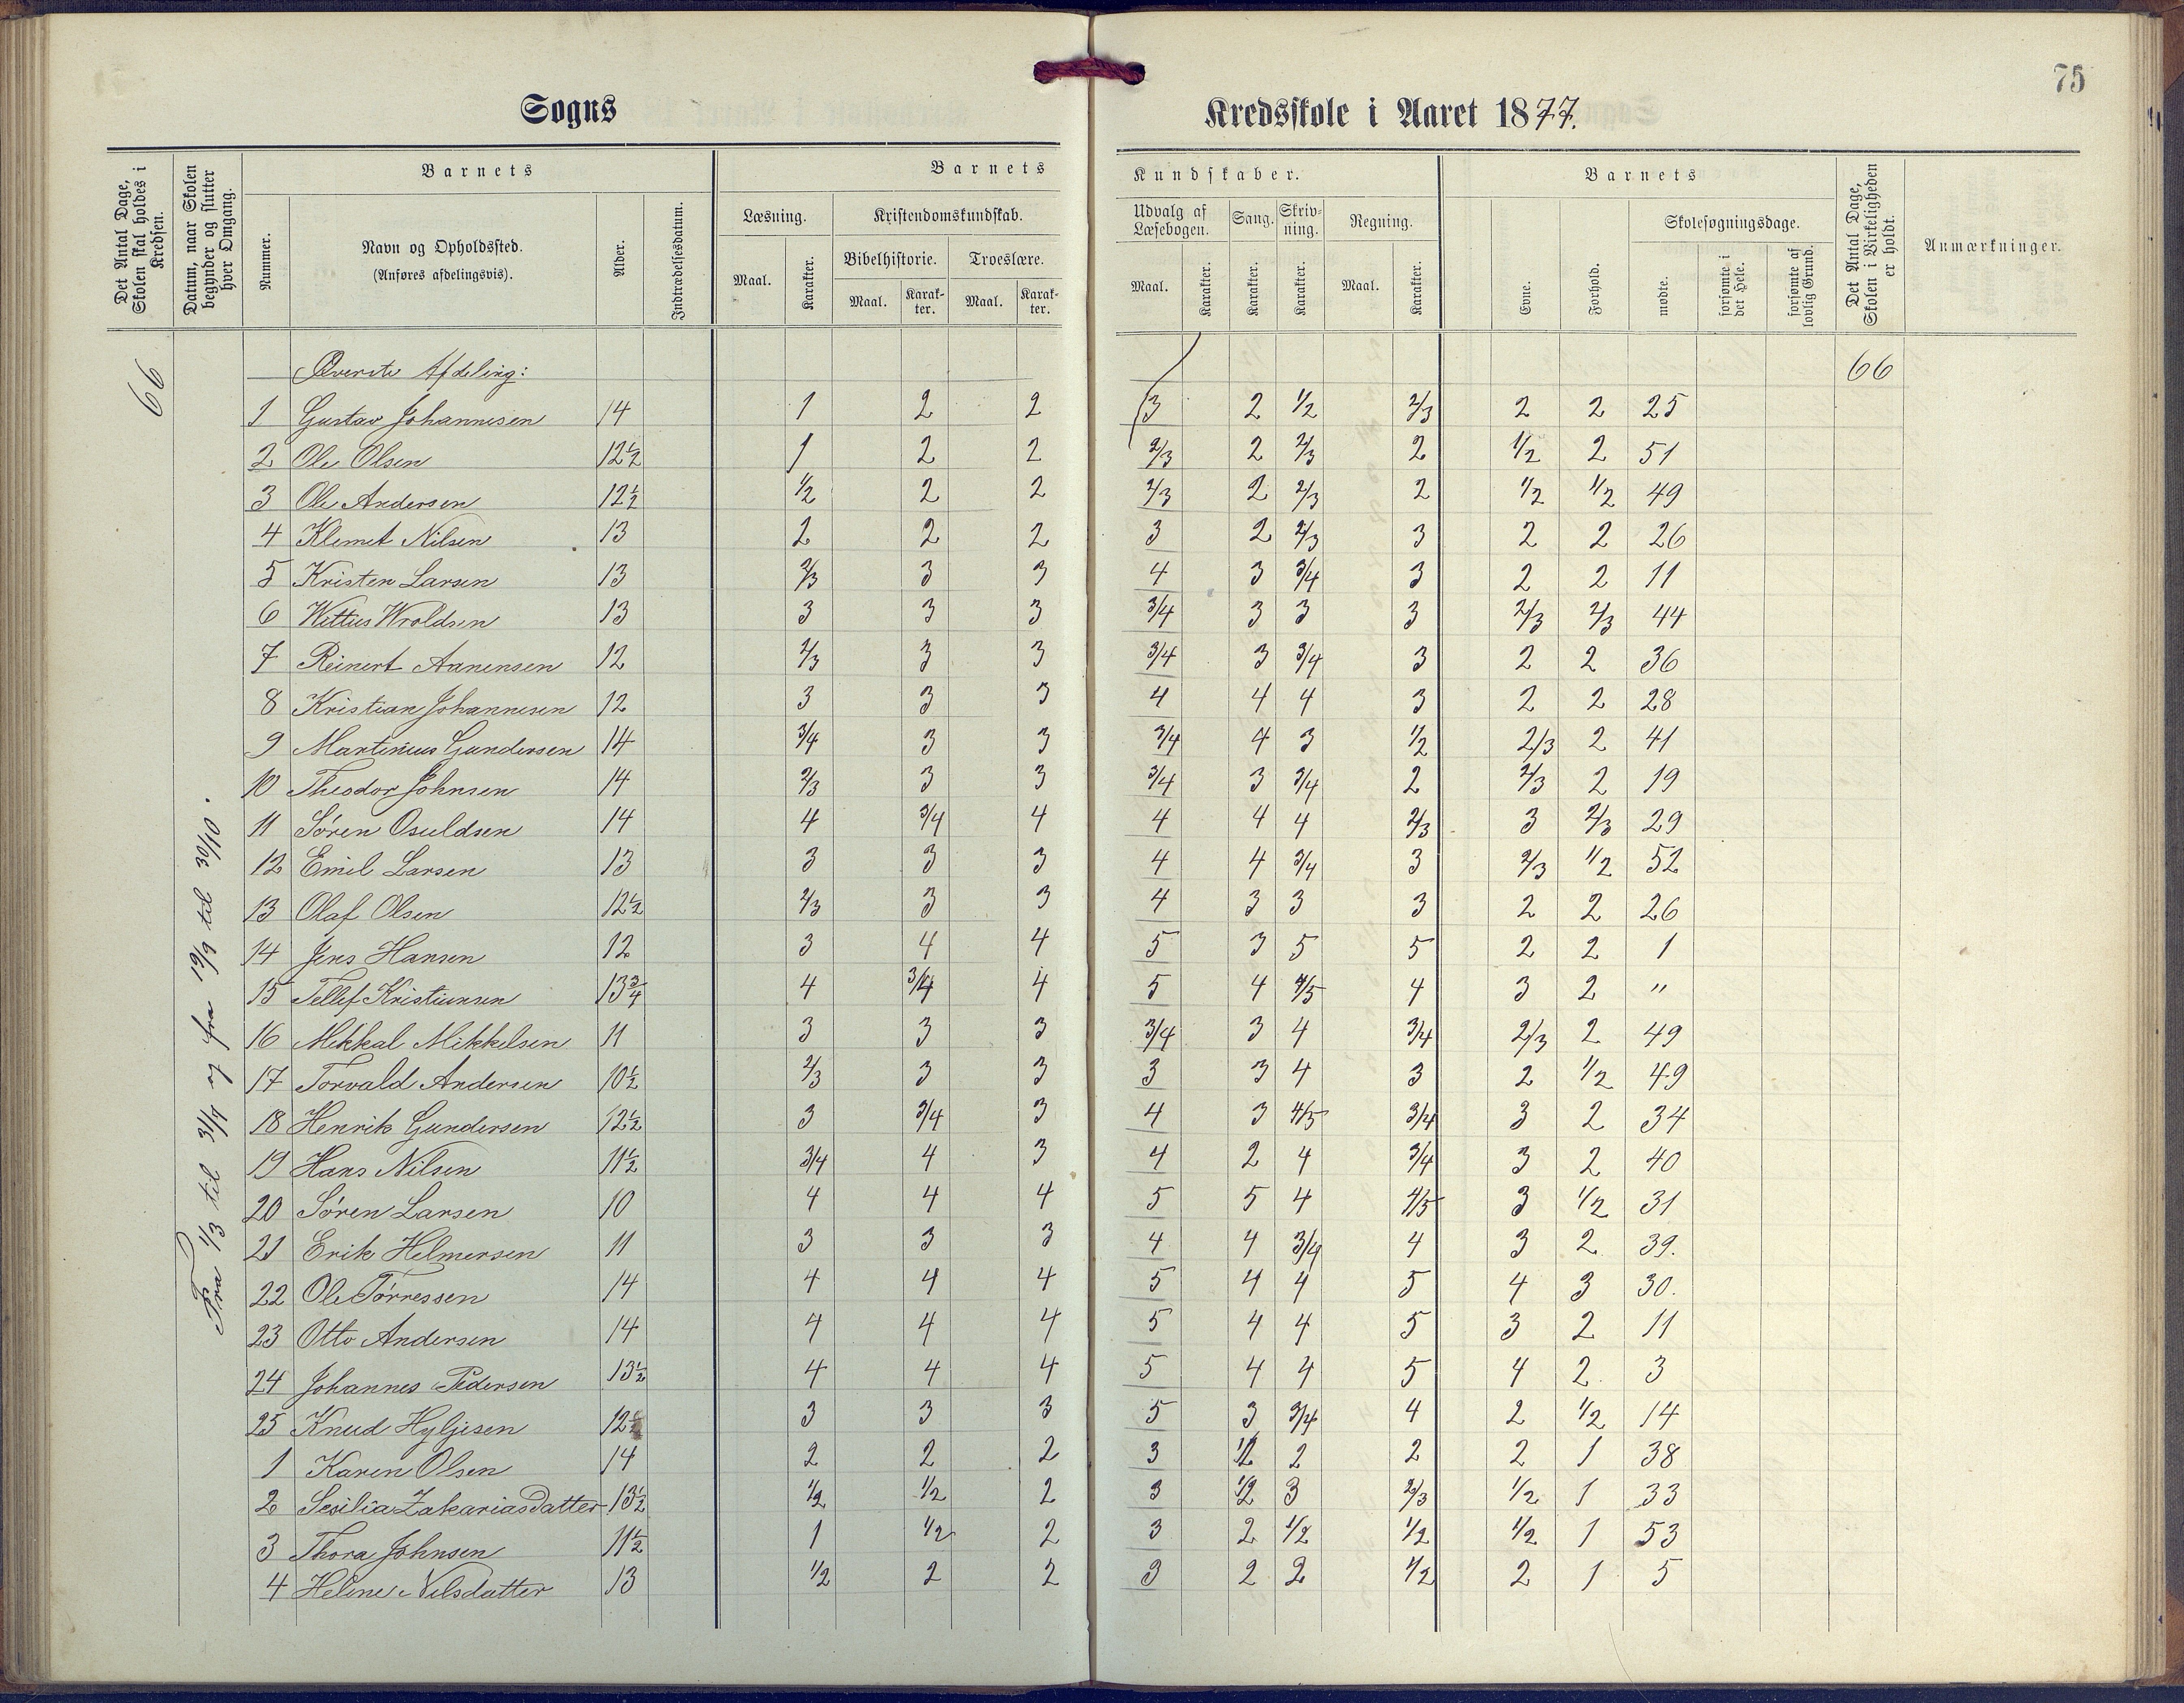 75
Sogns Kredsskole i Aaret 1877.
Det Antal Dage, Skolen skal holdes i Kredsen.
Datum, naar Skolen begynder og slutter hver Omgang.
Barnets
Nummer.
Navn og Opholdssted.
(Anføres afdelingsvis).
Alder.
Indtrædelsesdatum.
Barnets Kundskaber.
Læsning.
Maal. Karakter.
Kristendomskundskab.
Bibelhistorie. Troeslære.
Maal. Karakter. Maal. Karakter.
Udvalg af Læsebogen.
Maal. Karakter.
Sang.
Karakter.
Skrivning.
Karakter.
Regning.
Maal. Karakter.
Barnets
Evne. Forhold.
Skolesøgningsdage.
mødte. forsømte i det Hele. forsømte af lovlig Grund.
Det Antal Dage, Skolen i Virkeligheden er holdt.
Anmærkninger.
66
Fra 1/3 til 31/7 og fra 19/9 til 30/10.
Øverste Afdeling: 66
1 Gustav Johannesen 14 1 2 2 3 2 1/2 2/3 2 2 25
2 Ole Olsen 12½ 1 2 2 2/3 2 2/3 2 1/2 2 51
3 Ole Andersen 12½ 1/2 2 2 2/3 2 2/3 2 1/2 1/2 49
4 Klemet Nilsen 13 2 2 2 3 2 2/3 3 2 2 26
5 Kristen Larsen 13 2/3 3 3 4 3 3/4 3 2 2 11
6 Wittus Wroldsen 13 3 3 3 3/4 3 3 3 2/3 2/3 44
7 Reinert Aanensen 12 2/3 3 3 3/4 3 3/4 3 2 2 36
8 Kristian Johannesen 12 3 3 3 4 4 4 3 2 2 28
9 Martinius Gundersen 14 3/4 3 3 3/4 4 3 1/2 2/3 2 41
10 Theodor Johnsen 14 2/3 3 3 3/4 3 3/4 2 2/3 2 19
11 Søren Osuldsen 14 4 3/4 4 4 4 4 2/3 3 2/3 29
12 Emil Larsen 13 3 3 3 4 4 3/4 3 2/3 1/2 52
13 Olaf Olsen 12½ 2/3 3 3 4 3 3 3 2 2 26
14 Jens Hansen 12 3 4 4 5 3 5 5 2 2 1
15 Tellef Kristiansen 13¾ 4 3/4 4 5 4 4/5 4 3 2 "
16 Mikkal Mikkelsen 11 3 3 3 3/4 3 4 3/4 2/3 2 49
17 Torvald Andersen 10½ 2/3 3 3 3 3 4 3 2 1/2 49
18 Henrik Gundersen 12½ 3 3/4 3 4 3 4/5 3/4 3 2 34
19 Hans Nilsen 11½ 3/4 4 3 4 2 4 3/4 3 2 40
20 Søren Larsen 10 4 4 4 5 5 4 4/5 3 1/2 31
21 Erik Helmersen 11 3 3 3 4 4 3/4 4 3 2 39.
22 Ole Tørressen 14 4 4 4 5 4 4 5 4 3 30.
23 Otto Andersen 14 4 4 4 5 4 4 5 3 2 11
24 Johannes Pedersen 13½ 4 4 4 5 4 4 5 4 2 3
25 Knud Hyljesen 12½ 3 3 3 5 3 3/4 4 2 1/2 14
1 Karen Olsen 14 2 2 2 3 1/2 2 2 2 1 38
2 Sesilia Zakariasdatter 13½ 1/2 1/2 2 3 1/2 3 2/3 1/2 1 33
3 Thora Johnsen 11½ 1 1/2 2 3 2 1/2 1/2 1/2 1 53
4 Heline Nilsdatter 13 1/2 2 2 3 2 2 1/2 2 1 5